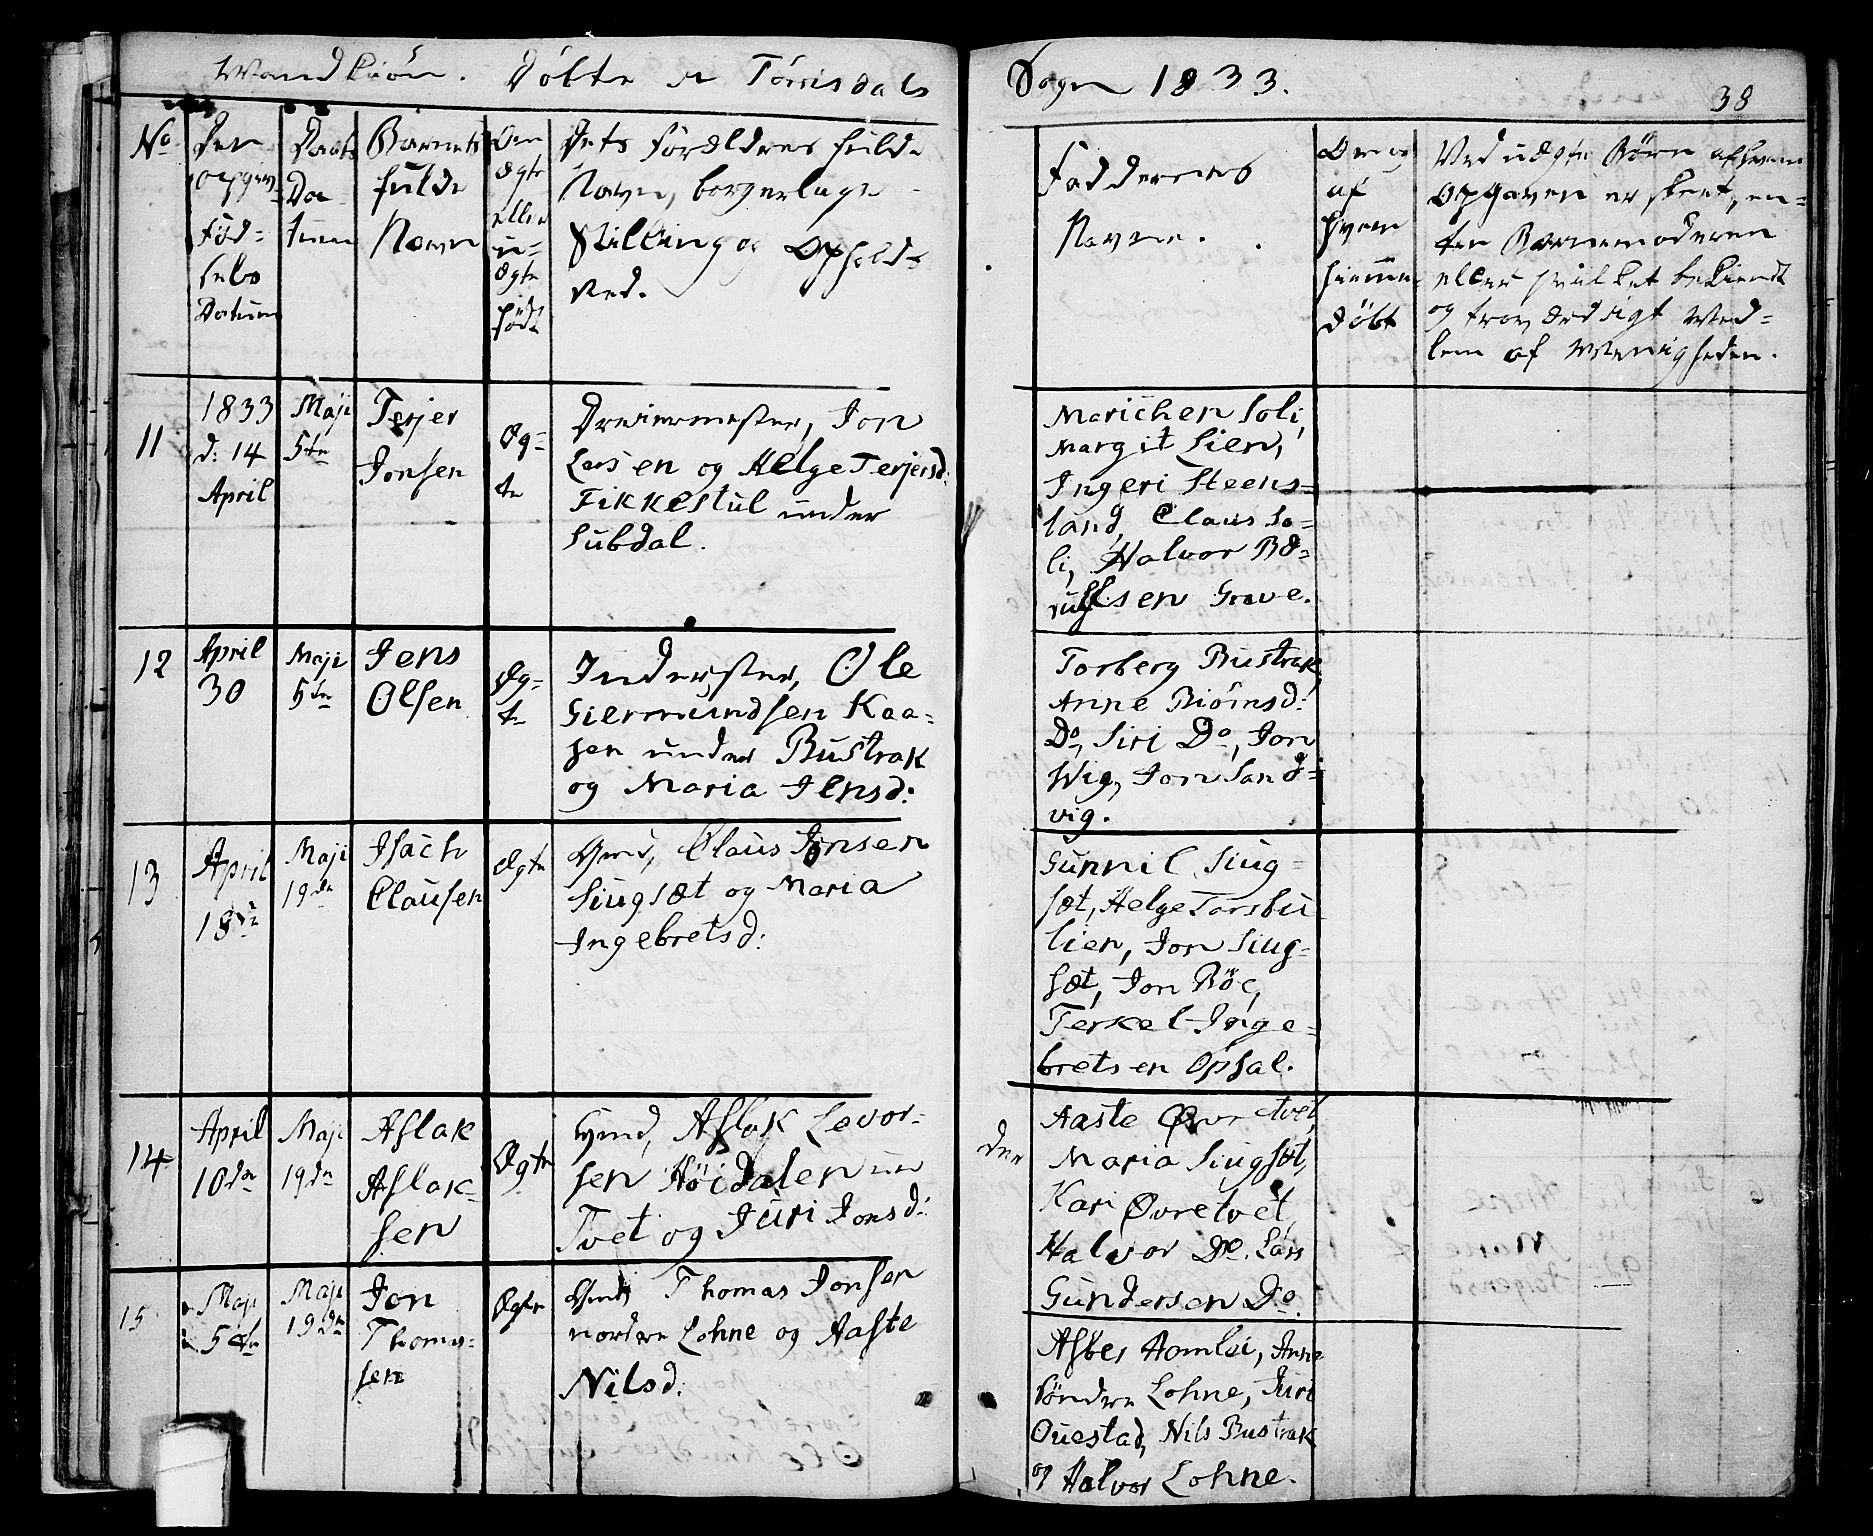 Mandkiøn. Døbte i Tørrisdals Sogn 1833.
38
No
Den opgivne Fødselsdatum
Daabs Datum
Barnets fulde Navn
Om ægte eller uægte født
Dets Forældres fulde Navn, borgerlige Stilling og Opholdsted.
Faddernes Navne.
Om og af hvem hiemmedøbt
Ved uægte Børn af hvem Opgaven er skeet, enten Barnemoderen eller hvilket bekiendt og troværdigt Medlem af Menigheden.
11
1833
d: 14
April
Maji
5te
Terjer
Jonsen
Æg=
te
Dreiermester, Jon
Larsen og Helge Terjersd:
Fikkestul under
Lubdal.
Marichen Soli,
Margit Lien,
Ingeri Steens=
land, Claus So=
li, Halvor Bæ=
rulfsen Grave.
12
April
30
Maji
5te
Jens
Olsen
Æg=
te
Inderster, Ole
Giermundsen Kaa=
sen under Bustrak
og Maria Jensd:
Torberg Bustrak,
Anne Biörnsd:
Do, Siri Do, Jon
Wig, Jon Sand=
vig.
13
April
18de
Maji
19de
Isach
Clausen
Ægte
Gmd, Claus Jonsen
Siugsæt og Maria
Ingebretsd:
Gunnil Siug=
sæt, Helge Torsbu=
lien, Jon Siug=
sæt, Jon Böe,
Terkel Inge=
bretsen Opsal.
14
April
10de
Maji
19de
Aslak
Aslak=
sen
Ægte
Hmd, Aslak Levor=
sen Höidalen un
der
Tvet og Juri Jonsd:
Aaste Øvretvet,
Maria Siugsæt,
Kari Øvretvet,
Halvor Do, Lars
Gundersen Do.
15
Maji
5te
Maji
19de
Jon
Thomas=
sen
Ægte
Gmd, Thomas Jonsen
nordre Lohne og Aaste
Nilsd:
Asber Homlei, Anne
söndre Lohne, Juri
Ouestad, Nils Bustrak
og Halvor Lohne.